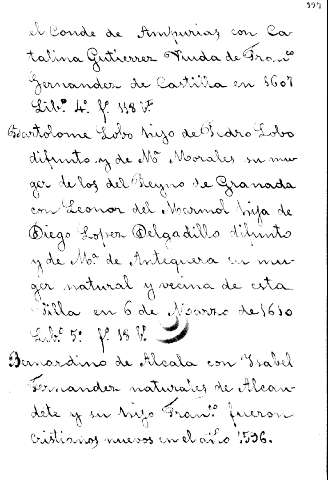 el Conde de Ampurias con Ca-
talina Gutierrez Viuda de Fran.co
Gernandez de Castilla en 1607
Lib.o 4.o f.o 118 V.to
Bartolome Lobo hijo de Pedro Lobo
difunto y de M.a Morales su mu-
ger de los del Reyno de Granada
con Leonor del Marmol hija de
Diego Lopez Delgadillo difunto
y de M.a de Antequera su mu-
ger natural y vecina de esta
Villa en 6 de Marzo de 1610
Lib.o 5.o f.o 18 V.to
Bernardino de Alcala con Ysabel
Fernandez naturales de Alcau-
dete y su hijo Fran.co fueron
cristianos nuevos en el año 1596.